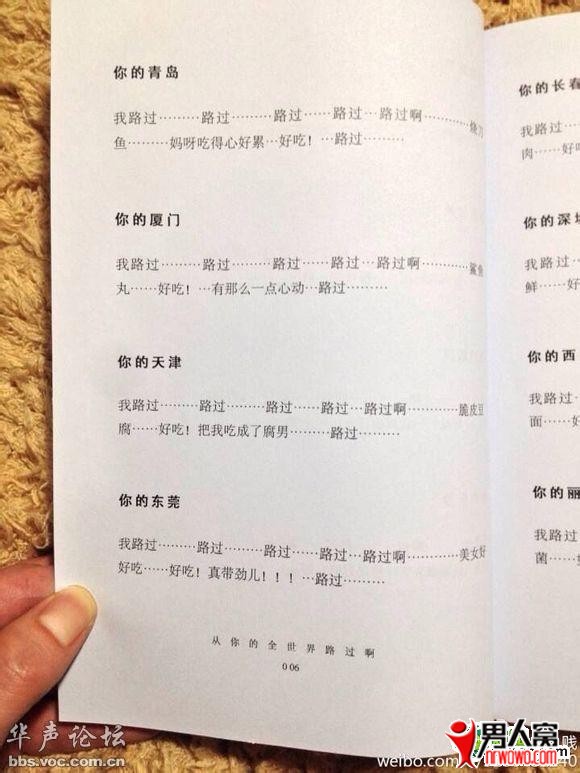 你的青岛
我路过………路过………路过……路过…路过啊………烧刀
鱼………妈呀吃得心好累…好吃！…路过………
你的厦门
我路过………路过………路过……路过…路过啊………鲨鱼
丸……好吃！…有那么一点心动…路过………
你的天津
我路过………路过………路过……路过…路过啊………脆皮豆
腐……好吃！把我吃成了腐男………路过………
你的东莞
我路过………路过………路过……路过…路过啊………美女好
好吃……好吃！真带劲儿！！！…路过………
从你的全世界路过啊
006
你的长春
我路过…
肉……好吃
你的深圳
我路过…
鲜……好
你的西
我路过
面……好
你的丽
我路过
菌……
华声论坛
bbs.voc.com.cn
男人窝
nrwowo.com
weibo.com/